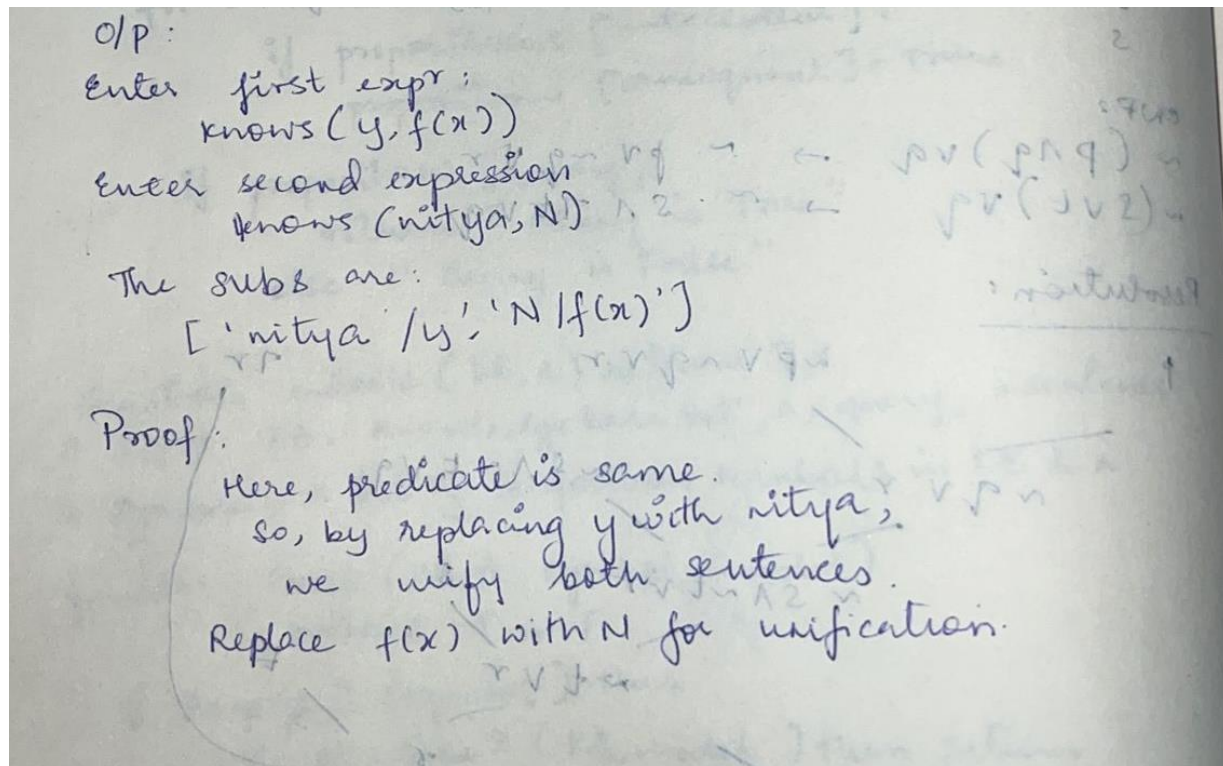 O/P:
Enter first expr:
knows(y, f(x))
Enter second expression
knows (nitya, N)
The subs are:
['nitya /y', 'N/f(x)']
Proof:
Here, predicate is same.
so, by replacing y with nitya,
we unify both sentences.
Replace f(x) with N for unification.